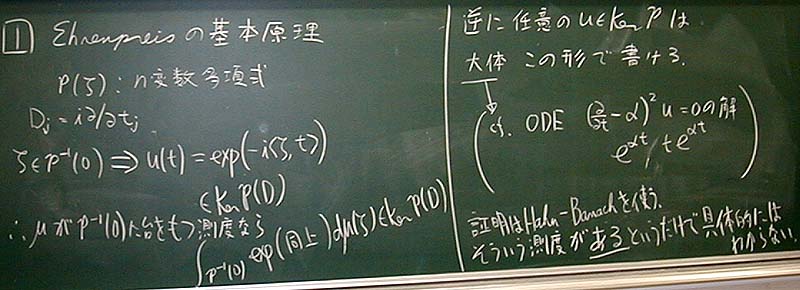 1 Ehrenpreisの基本原理
P(ζ): n変数多項式
Dj = i∂/∂tj
ζ∈P⁻¹(0) ⟹ u(t) = exp(-i<ζ,t>)
∈Ker P(D)
∴ μがP⁻¹(0)に台をもつ測度なら
∫_{P⁻¹(0)} exp(同上)dμ(ζ)∈Ker P(D)
逆に任意のu∈Ker Pは
大体 この形で書ける.
cf. ODE (∂/∂t-α)²u=0の解
e^{αt}, te^{αt}
証明はHahn-Banachを使う.
そういう測度があるというだけで具体的には
わからない.